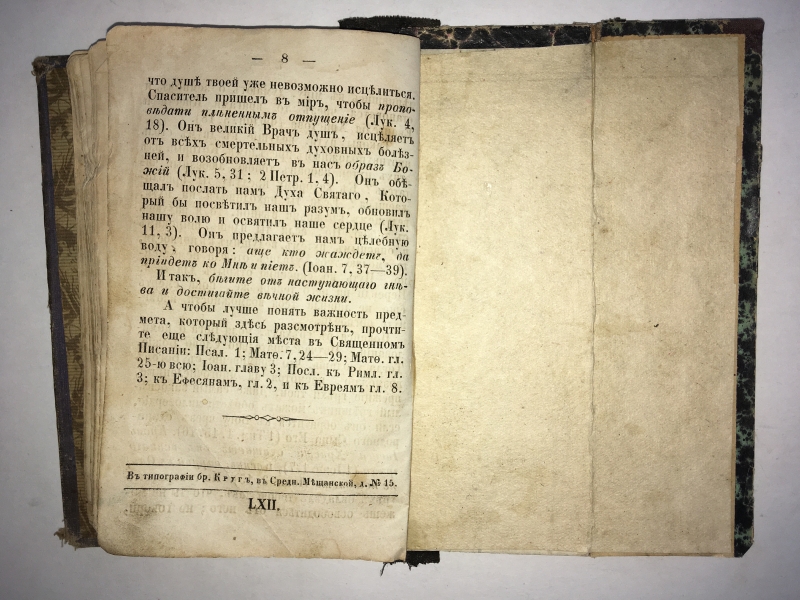 — 8 —
что душѣ твоей уже невозможно исцѣлиться.
Спаситель пришелъ въ міръ, чтобы пропо-
вѣдати плѣненнымъ отпущеніе (Лук. 4,
18). Онъ великій Врачъ душъ, исцѣляетъ
отъ всѣхъ смертельныхъ духовныхъ болѣз-
ней, и возобновляетъ въ насъ образъ Бо-
жій (Лук. 5, 31; 2 Петр. 1, 4). Онъ обѣ-
щалъ послать намъ Духа Святаго, Кото-
рый бы посвѣтилъ нашъ разумъ, обновилъ
нашу волю и освятилъ наше сердце (Лук.
11, 3). Онъ предлагаетъ намъ цѣлебную
воду, говоря: аще кто жаждетъ, да
пріидетъ ко Мнѣ и піетъ. (Іоан. 7, 37—39).
Итакъ, бѣгите отъ наступающаго гнѣ-
ва и достигайте вѣчной жизни.
А чтобы лучше понять важность пред-
мета, который здѣсь разсмотрѣнъ, прочти-
те еще слѣдующія мѣста въ Священномъ
Писаніи: Псал. 1; Матѳ. 7, 24—29; Матѳ. гл.
25-ю всю; Іоан. главу 3; Посл. къ Римл. гл.
3; къ Ефесянамъ, гл. 2, и къ Евреямъ гл. 8.
Въ типографіи бр. Кругъ, въ Средн. Мѣщанской, д. № 15.
LXII.